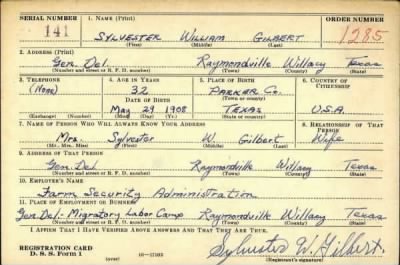 SERIAL NUMBER 1. NAME (Print) ORDER NUMBER
141 SYLVESTER WILLIAM GILBERT 1285
(First) (Middle) (Last)
2. ADDRESS (Print)
Gen. Del. Raymondville Willacy Texas
(Number and street or R. F. D. number) (Town) (County) (State)
3. TELEPHONE 4. AGE IN YEARS 5. PLACE OF BIRTH 6. COUNTRY OF CITIZENSHIP
(None) 32 PARKER CO.
DATE OF BIRTH (Town or county)
May 29 1908 TEXAS U.S.A.
(Exchange) (Number) (Mo.) (Day) (Yr.) (State or country)
7. NAME OF PERSON WHO WILL ALWAYS KNOW YOUR ADDRESS 8. RELATIONSHIP OF THAT PERSON
Mrs. Sylvester W. Gilbert Wife
(Mr., Mrs., Miss) (First) (Middle) (Last)
9. ADDRESS OF THAT PERSON
Gen. Del. Raymondville Willacy Texas
(Number and street or R. F. D. number) (Town) (County) (State)
10. EMPLOYER'S NAME
Farm Security Administration
11. PLACE OF EMPLOYMENT OR BUSINESS
Gen. Del. - Migratory Labor Camp Raymondville Willacy Texas
(Number and street or R. F. D. number) (Town) (County) (State)
I AFFIRM THAT I HAVE VERIFIED ABOVE ANSWERS AND THAT THEY ARE TRUE.
REGISTRATION CARD
D. S. S. Form 1 (over) Sylvester W. Gilbert